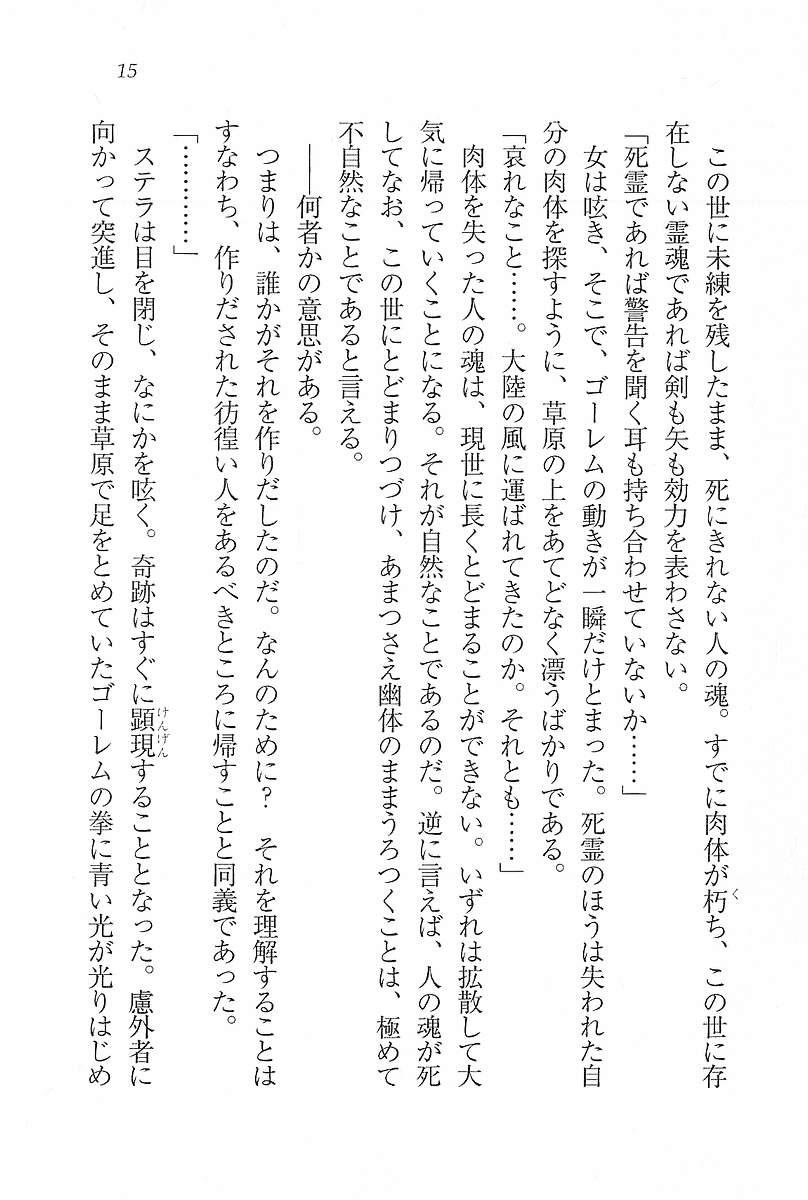 15
この世に未練を残したまま、死にきれない人の魂。すでに肉体が朽ち、この世に存
在しない霊魂であれば剣も矢も効力を表わさない。
「死霊であれば警告を聞く耳も持ち合わせていないか……」
女は呟き、そこで、ゴーレムの動きが一瞬だけとまった。死霊のほうは失われた自
分の肉体を探すように、草原の上をあてどなく漂うばかりである。
「哀れなこと……。大陸の風に運ばれてきたのか。それとも……」
肉体を失った人の魂は、現世に長くとどまることができない。いずれは拡散して大
気に帰っていくことになる。それが自然なことであるのだ。逆に言えば、人の魂が死
してなお、この世にとどまりつづけ、あまつさえ幽体のままうろつくことは、極めて
不自然なことであると言える。
――何者かの意思がある。
つまりは、誰かがそれを作りだしたのだ。なんのために？　それを理解することは
すなわち、作りだされた彷徨い人をあるべきところに帰すことと同義であった。
「…………」
ステラは目を閉じ、なにかを呟く。奇跡はすぐに顕現することとなった。慮外者に
向かって突進し、そのまま草原で足をとめていたゴーレムの拳に青い光が光りはじめ
く
けんげん